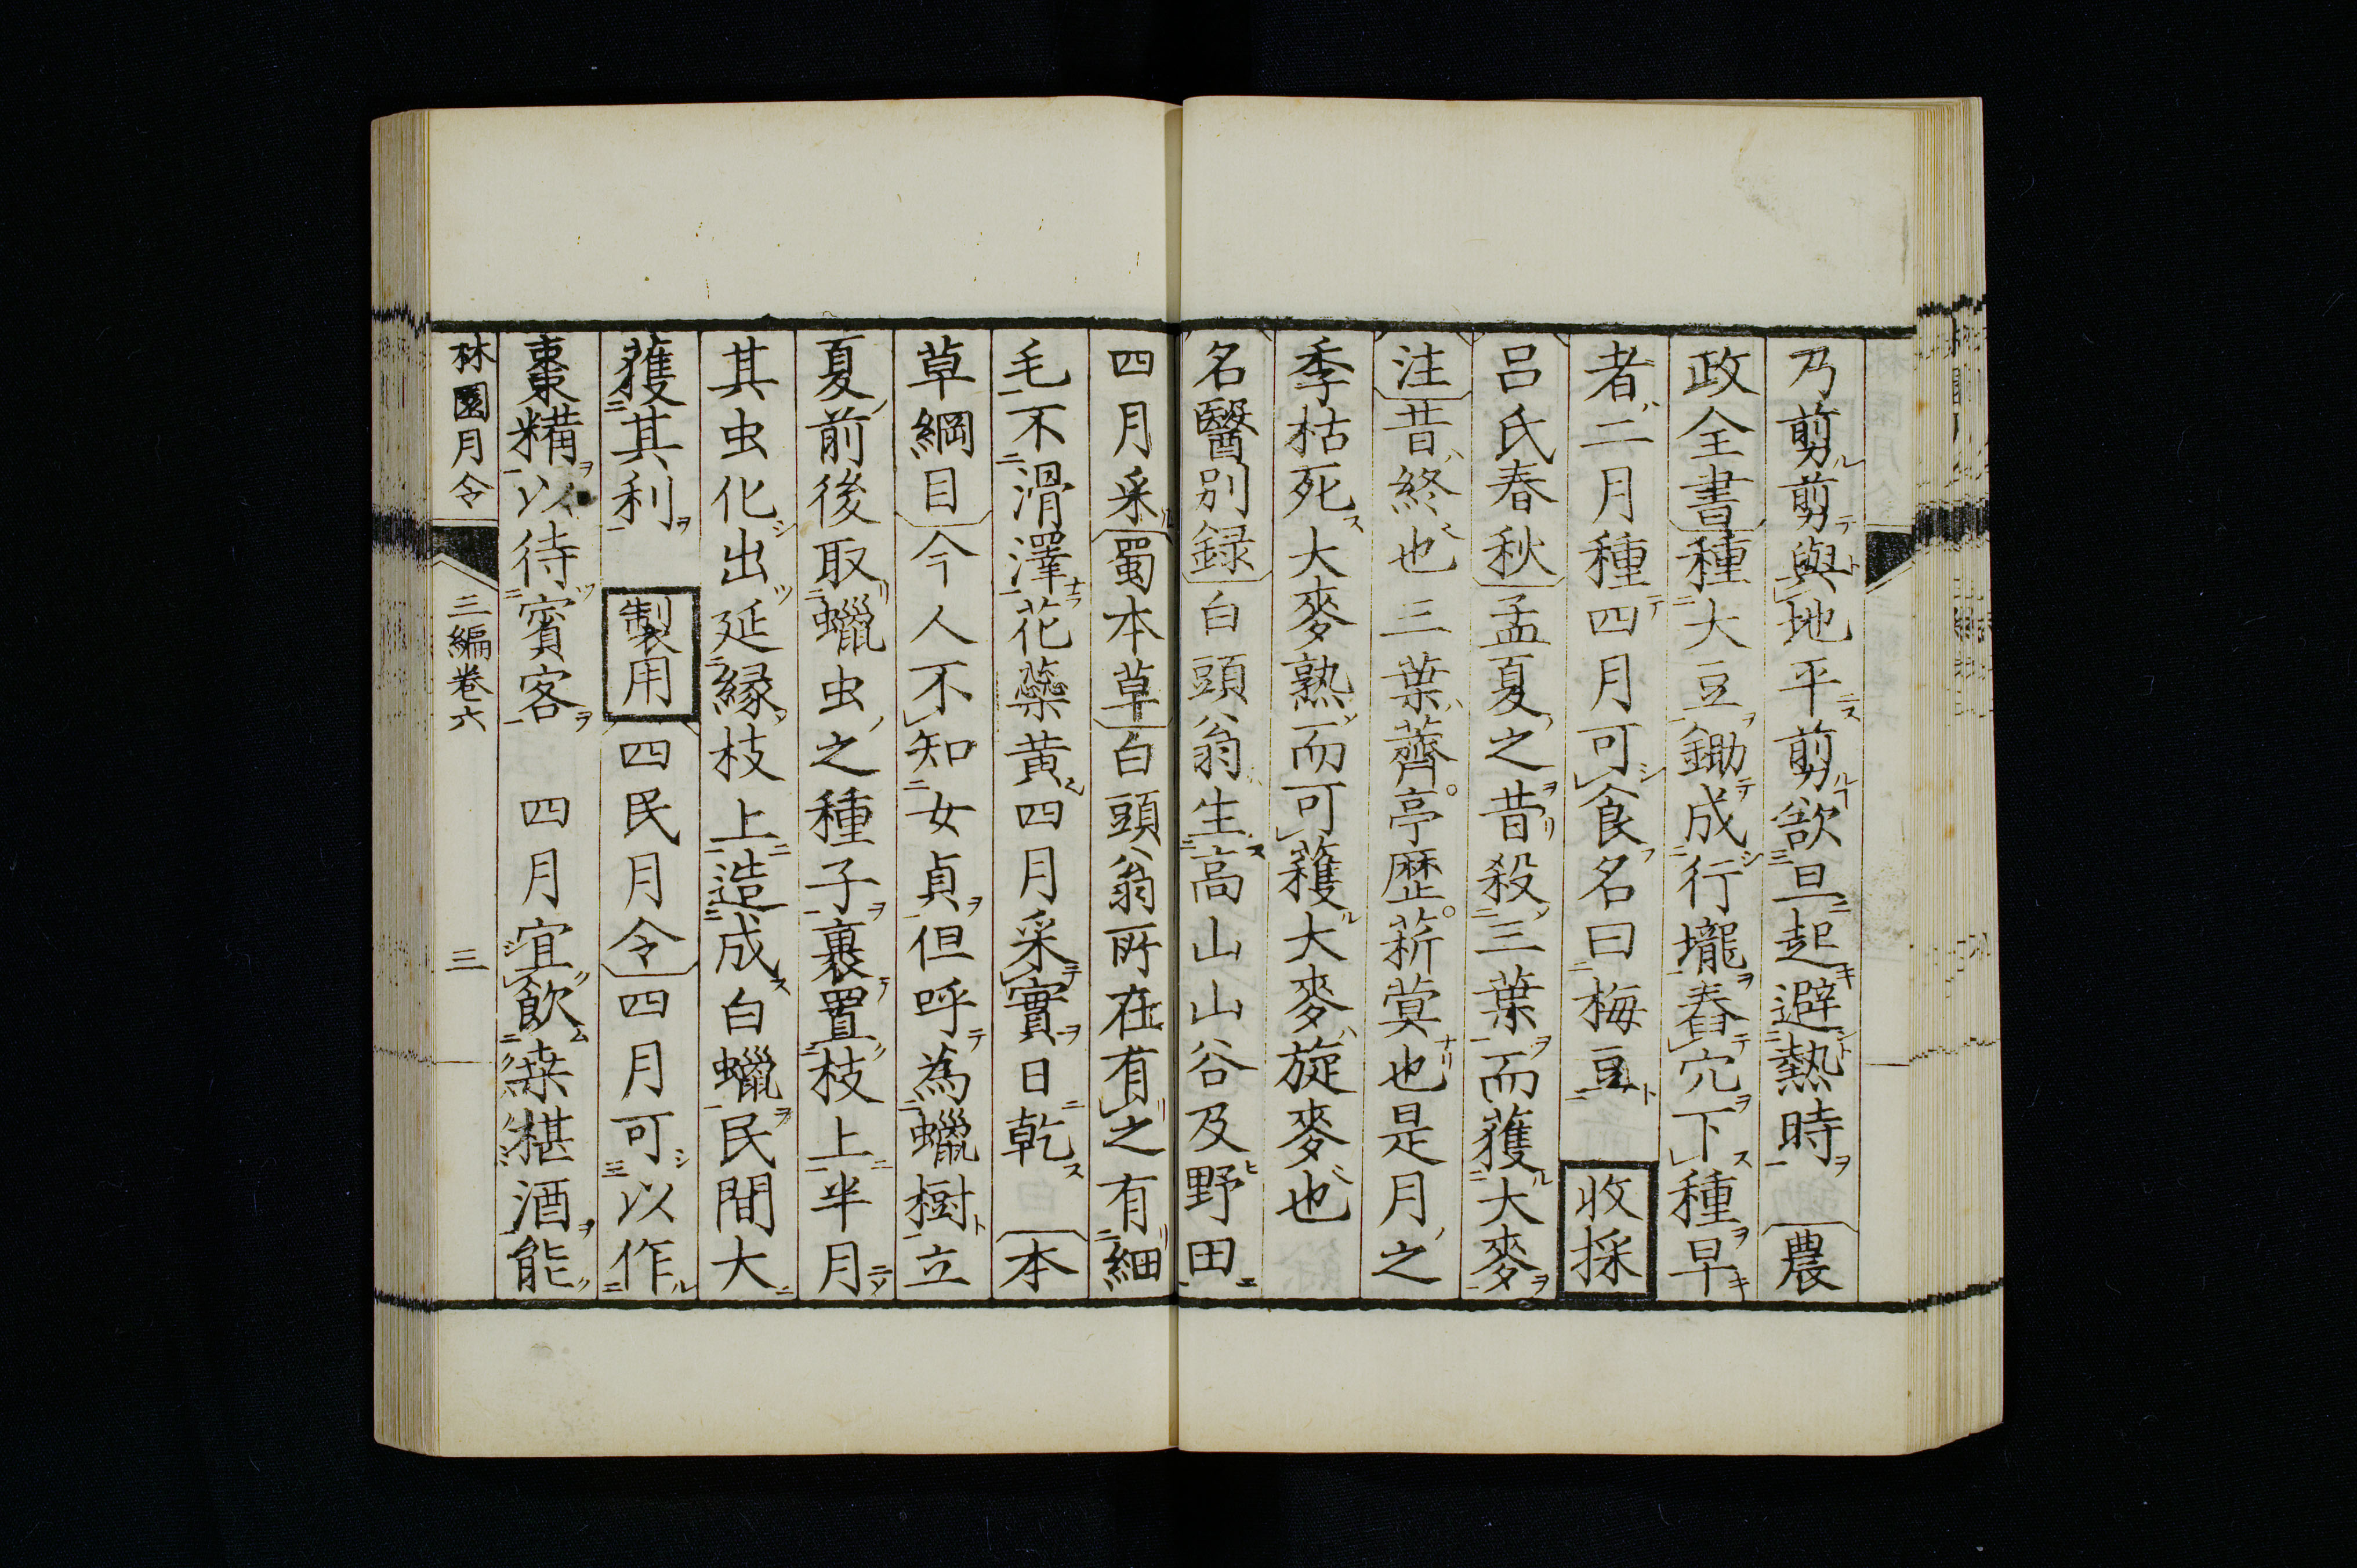 乃剪剪與地平剪欲旦起避熱時農
政全書種大豆鋤成行壠舂穴下種早
者二月種四月可食名曰梅豆 收採
呂氏春秋孟夏之昔殺三葉而穫大麥
注昔終也三葉薺亭歴菥蓂也是月之
季枯死大麥熟而可穫大麥旋麥也
名醫別録白頭翁生高山山谷及野田
四月采蜀本草白頭翁所在有之有細
毛不滑澤花蘂黄四月采實日乾 本
草綱目今人不知女貞但呼為蠟樹立
夏前後取蠟虫之種子裹置枝上半月
其虫化出延縁枝上造成白蠟民間大
獲其利 製用 四民月令四月可以作
棗糒以待賓客 四月宜飲桒椹酒能
林園月令 三編卷六 三